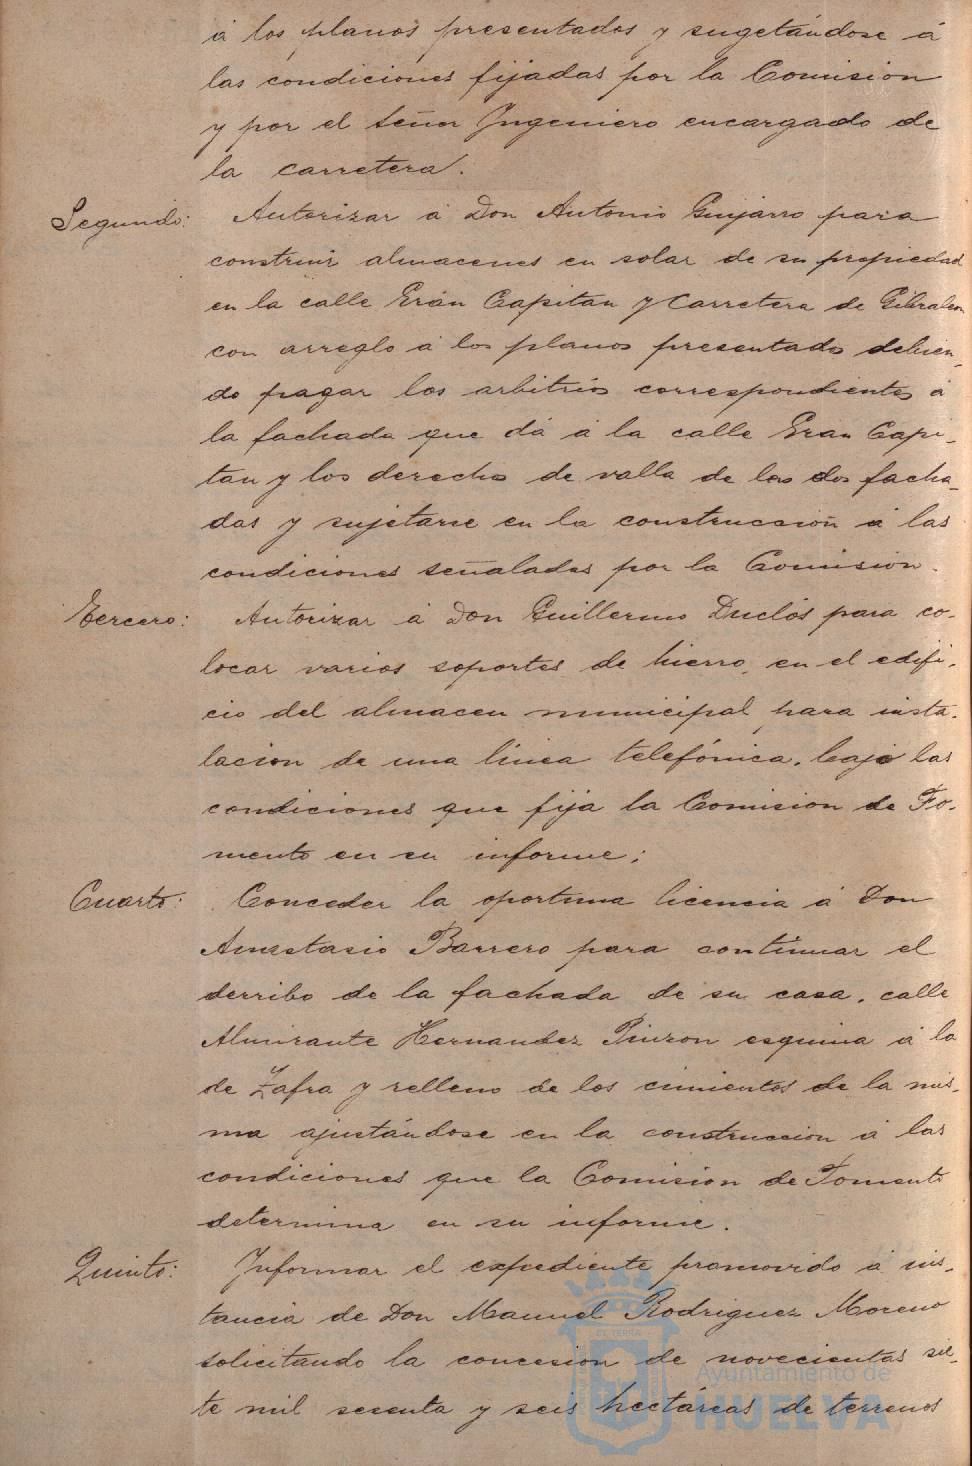 á los planos presentados y sugetándose á
las condiciones fijadas por la Comision
y por el señor Ingeniero encargado de
la carretera.
Segundo: Autorizar á Don Antonio Guijarro para
construir almacenes en solar de su propiedad
en la calle Gran Capitan y Carretera de Gibraleon
con arreglo á los planos presentados debien-
do pagar los arbitrios correspondientes á
la fachada que dá á la calle Gran Capi-
tan y los derechos de valla de las dos facha-
das y sujetarse en la construccion á las
condiciones señaladas por la Comision.
Tercero: Autorizar á Don Guillermo Duclós para co-
locar varios soportes de hierro en el edifi-
cio del almacen municipal para insta-
lacion de una línea telefónica, bajo las
condiciones que fija la Comision de Fo-
mento en su informe;
Cuarto: Conceder la oportuna licencia á Don
Anastasio Barrero para continuar el
derribo de la fachada de su casa, calle
Almirante Hernandez Pinzon esquina á la
de Zafra y relleno de los cimientos de la mis-
ma ajustándose en la construccion á las
condiciones que la Comision de Fomento
determina en su informe.
Quinto: Informar el expediente promovido á ins-
tancia de Don Manuel Rodriguez Moreno
solicitando la concesion de novecientas sie-
te mil sesenta y seis hectáreas de terrenos
Ayuntamiento de
HUELVA